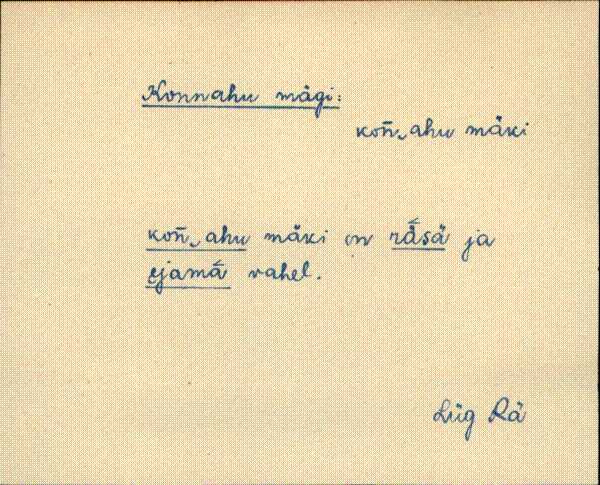 Konnahu mägi:
kon̄‿ahu mäki
kon̄‿ahu mäki on rā́sä ja
ejamā́ vahel.
Lüg Rä